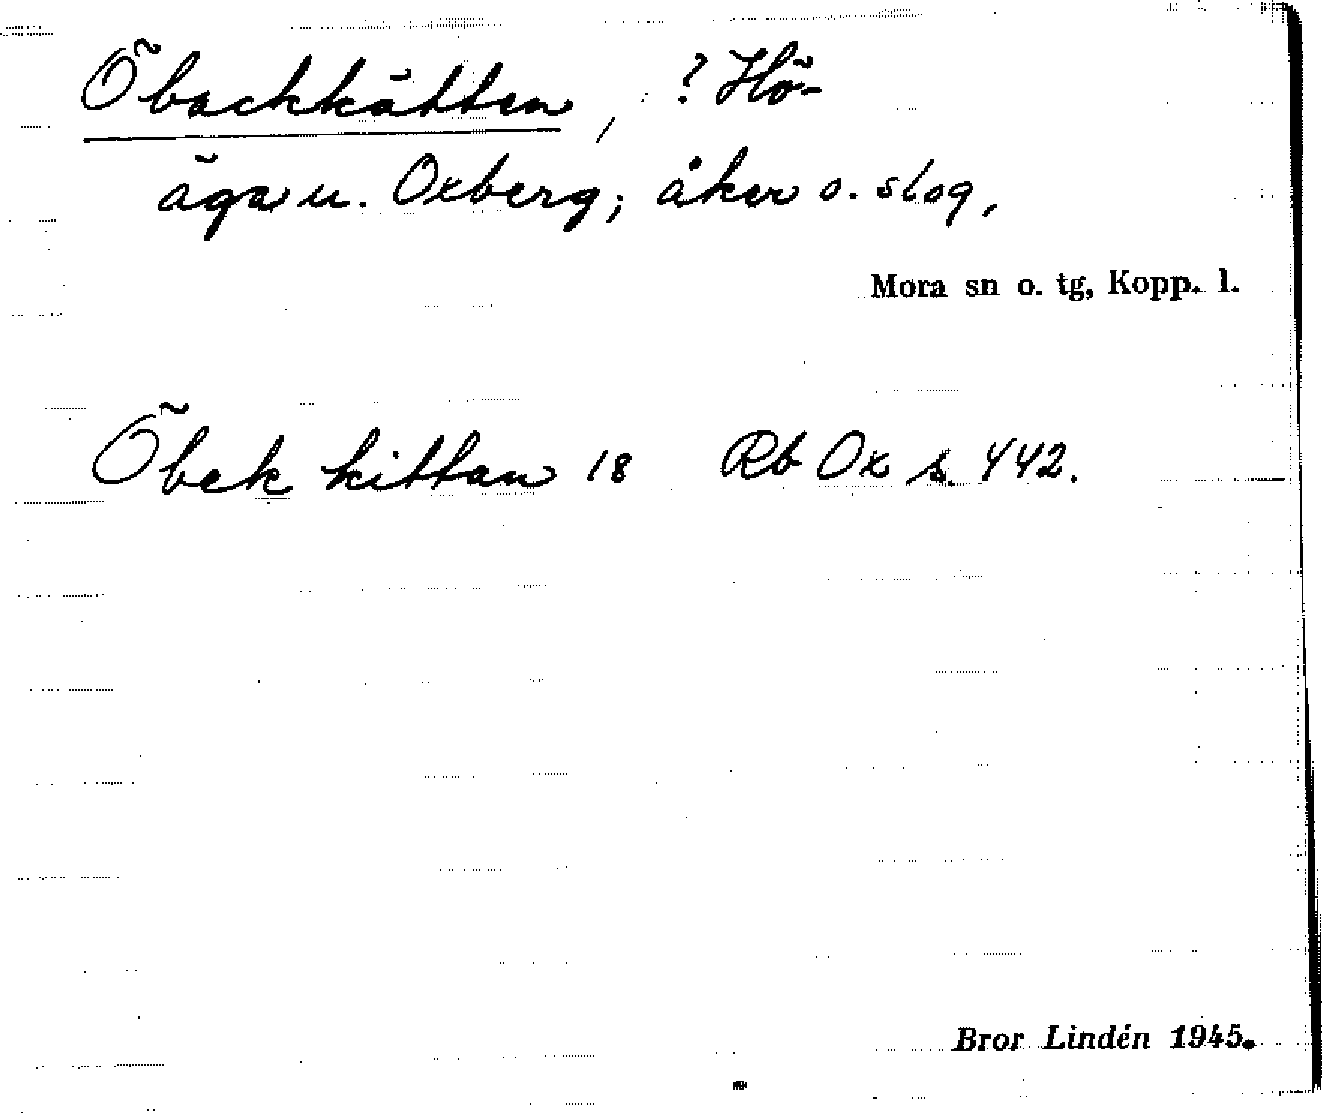 Öbackkätten, ? Hö-
äga u. Oxberg; åker o. slog,
Mora sn o. tg, Kopp. l.
Öbek kittan 18 Rb Ox s. 442.
Bror Lindén 1945.